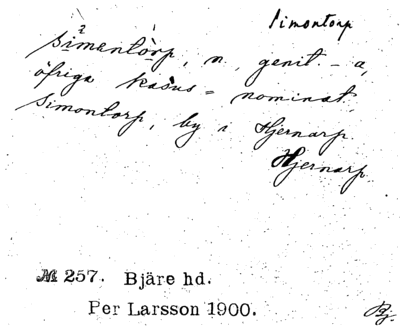 Simontorp
simentòrp, n, genit - a,
öfriga kasus = nominat.
Simontorp, by i Hjernarp.
Hjernarp
№ 257. Bjäre hd.
Per Larsson 1900.
Bj.